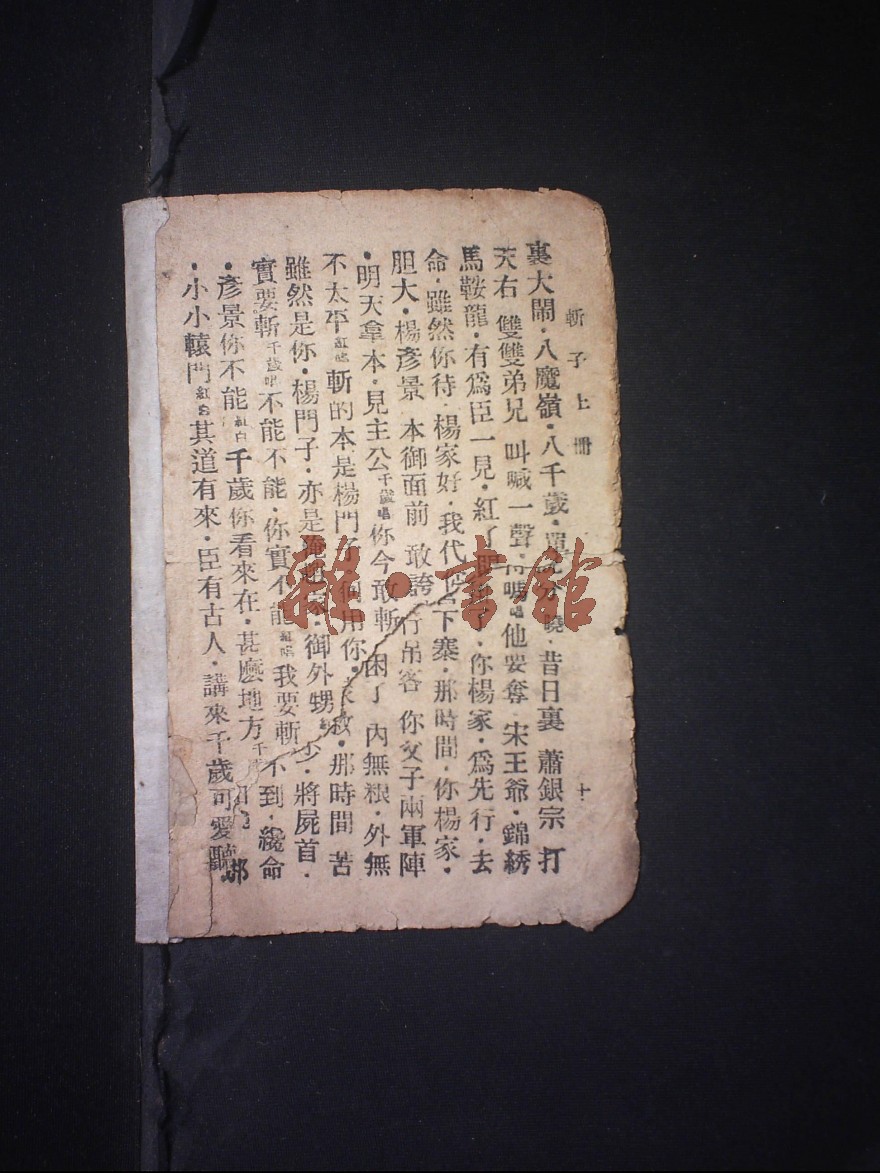 斬子上册 十
裏大鬧·八魔嶺·八千歲· 曉·昔日裏 蕭銀宗 打
天右 雙雙弟兄 叫喊一聲· 嗎 他要奪 宋王爺·錦綉
馬鞍龍·有爲臣一見·紅了 了·你楊家·爲先行·去
命·雖然你待·楊家好·我代 下寨·那時間·你楊家·
胆大·楊彥景 本御面前 敢誇 行吊客 你父子·兩軍陣
·明天拿本·見主公千歲唱你今敢斬·困了 內無粮·外無
不太平紅唱斬的本是楊門子 何用你· 救·那時間 苦
雖然是你·楊門子·亦是 御外甥 少·將屍首·
實要斬千歲唱不能不能·你實不能紅唱我要斬·不到·纔命
·彥景你不能紅白千歲你看來在·甚麽地方千 邦
·小小轅門紅白其道有來·臣有古人·講來千歲可愛聽·
雜·書館